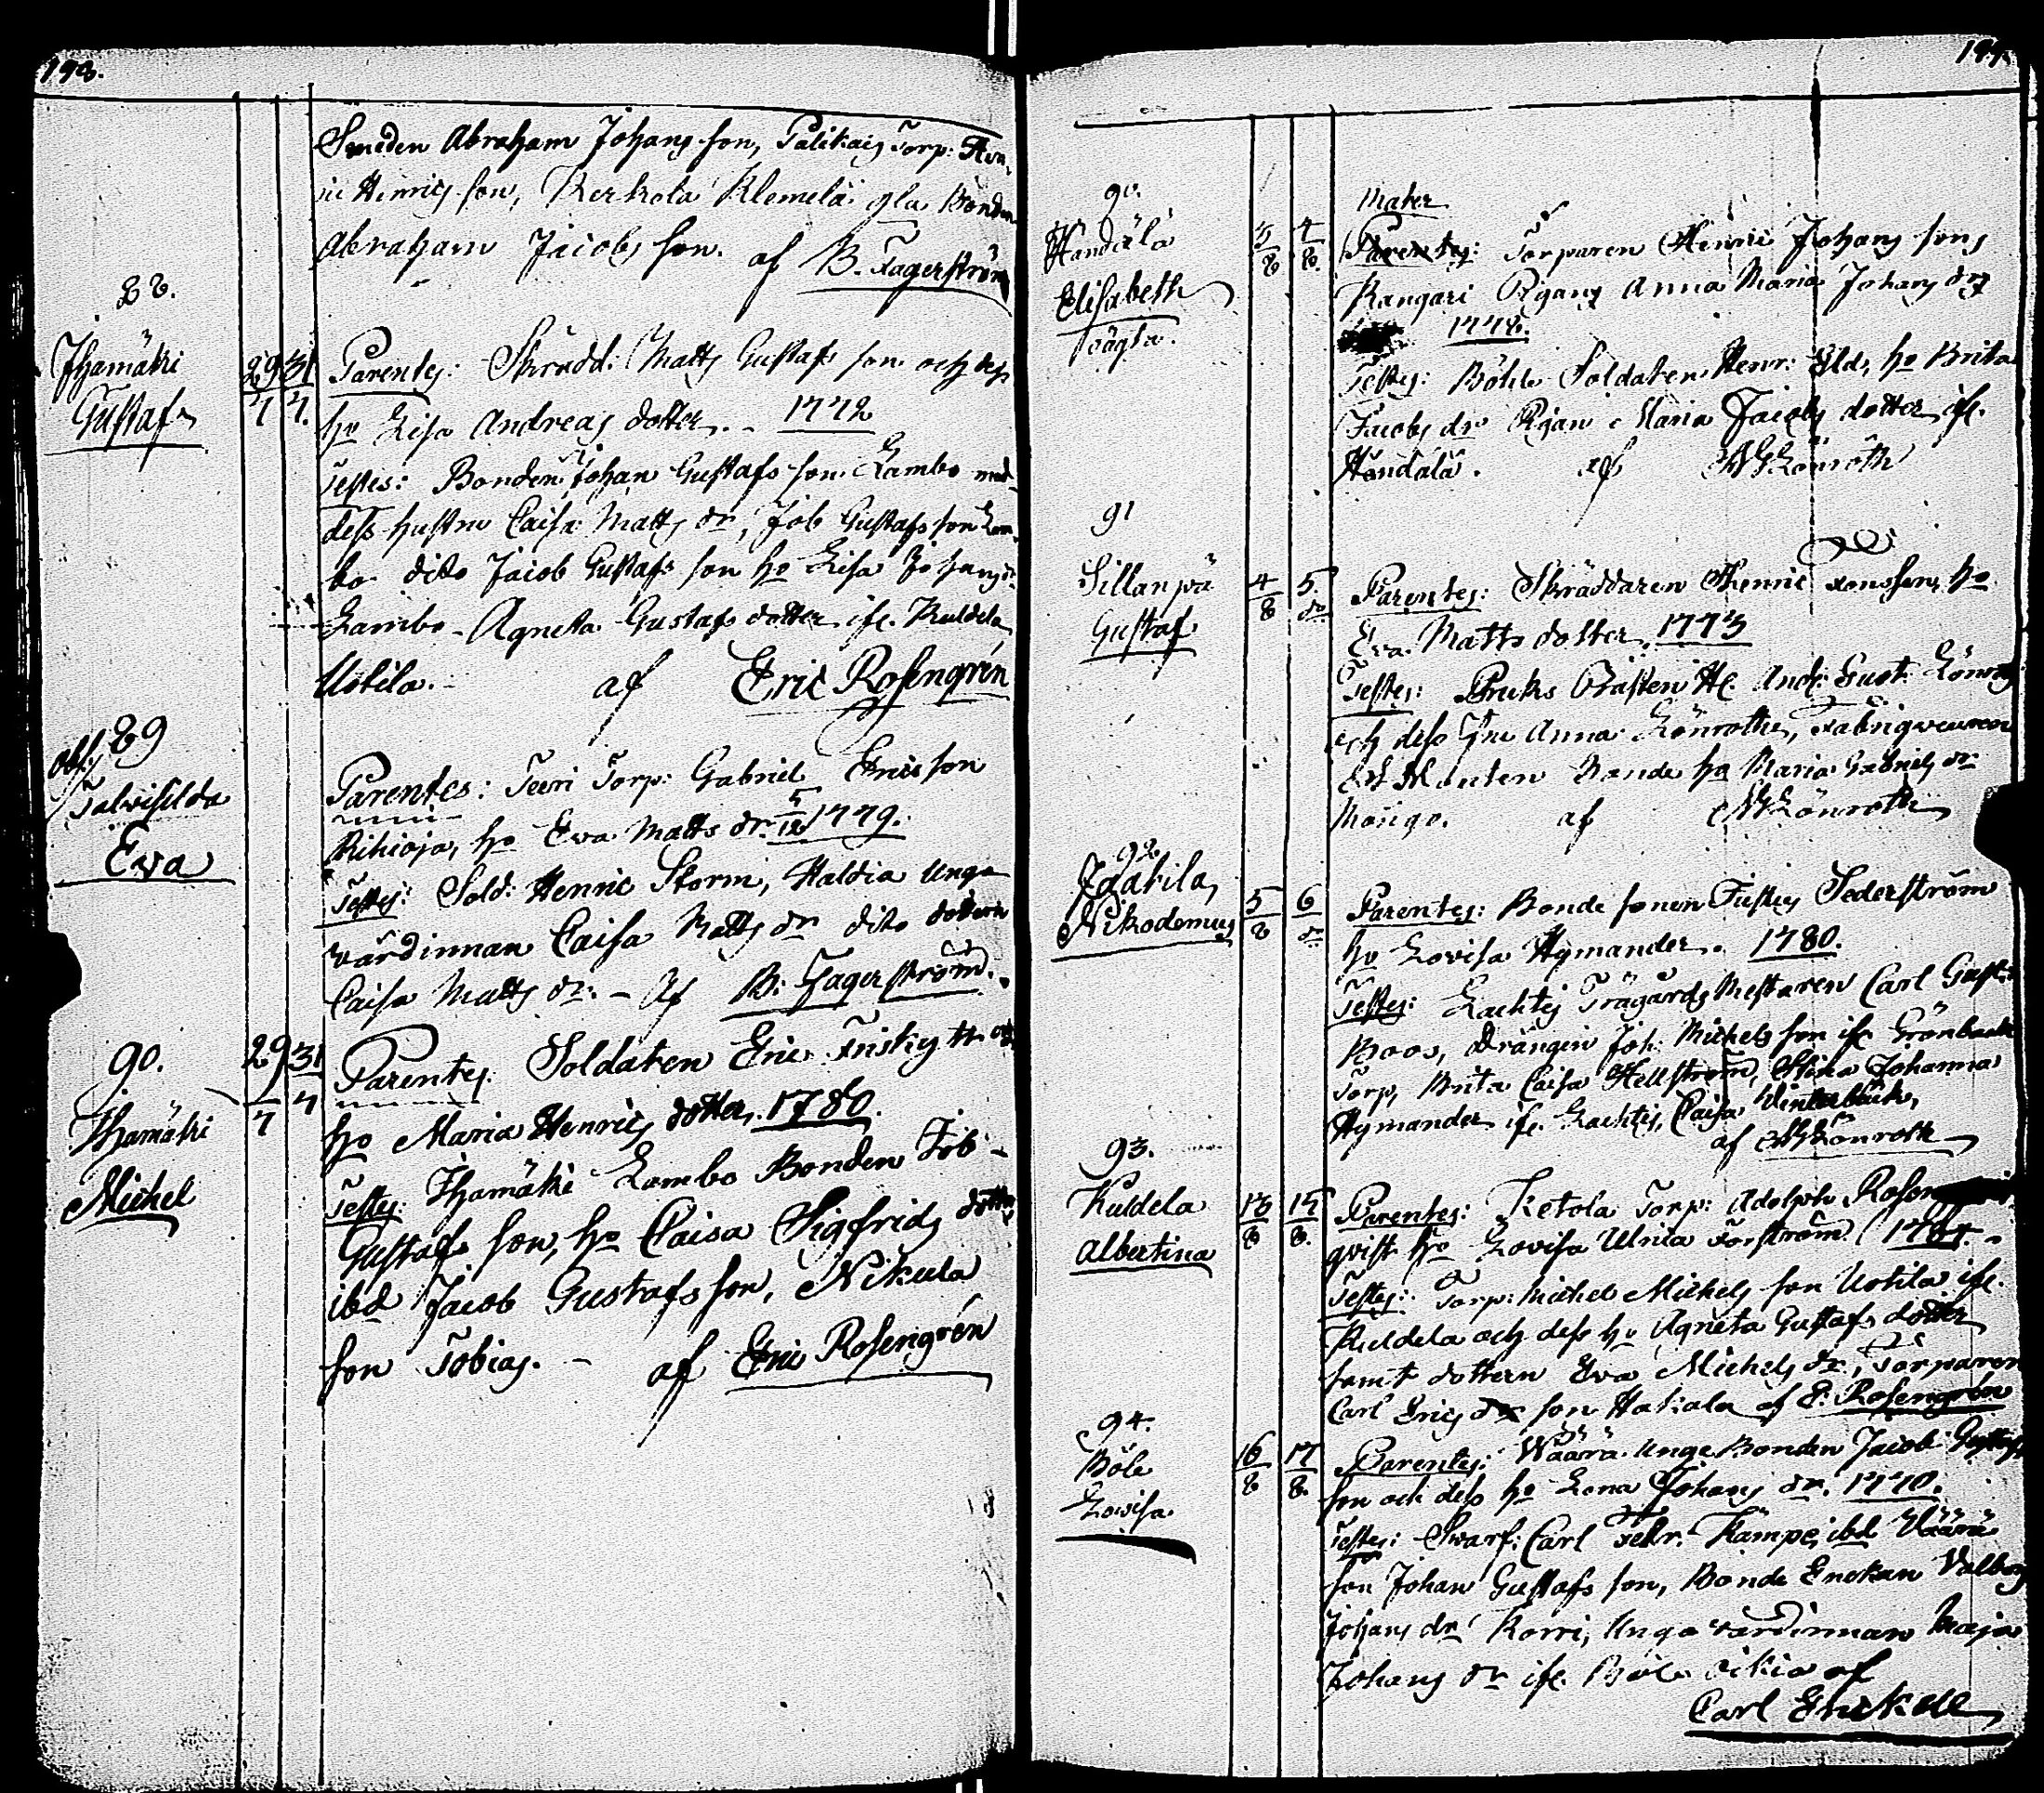 198.
Smeden Abraham Johans son, Palikais Torp:
Henrics son, Kerkola Klemelä gla Bonden
Abraham Jacobs son. af B. Fagerström
88.
Ihamäki
Gustaf
29/7 31/7.
Parentes: Skrädd: Matts Gustafs son och dess
ho Lisa Andreas dotter. 1772
Testes: Bonden Johan Gustafs son Lambo med
dess hustru Caisa Matts dr, Job Gustafs son Lam-
bo dito Jacob Gustafs son ho Lisa Johans
Lambo Agneta Gustafs dotter ifr. Kuldela
Uotila. af Eric Rosengrén
89
Talvisilda
Eva
Parentes: Torp: Gabriel Erics son
Rihioja, ho Eva Matts dr. 5/12 1779.
Testes: Sold: Henric Storm, Haldia Unga
värdinnan Caisa Matts dr dito dottern
Caisa Matts dr. Af B: Fagerström.
90.
Ihamäki
Michel
29/7 31/7
Parentes: Soldaten Eric
ho Maria Henrics dotter. 1780.
Testes: Ihamäki Lambo Bonden Job
Gustafs son, ho Caisa Sigfrids dotter
ibd Jacob Gustafs son, Nikula
son Tobias. af Eric Rosengrén
199.
90.
Handälä
Elisabeth
oägta.
3/8 4/8.
Mater
Parentes: Torparen Henric Johans sons
Kangari Pigans Anna Maria Johans dr
1778.
Testes: Böhle Soldaten Henr: ho Brita
Jacobs dr Pigan Maria Jacobs dotter ifr.
Handälä. af Lönroth
91
Sillanpä
Gustaf
4/8 5. do
Parentes: Skräddaren Henric ho
Eva Matts dotter. 1773
Testes: Bruks Prästen H. And: Gust: Lönroth
och dess Fru Anna Lönrothe,
ho Maria Gabriels dr
af Lönroth
92
Nikodemus
5/8 6 do
Parentes: Bonde sonen Sederström
ho Lovisa Hymander. 1780.
Testes: Lachtis Trägårds Mestaren Carl Gust:
Boos, Drängen Joh: Michels son ifr Grönbacka
Torp, Brita Caisa Hellström, Stina Johanna
Hymander ifr. Lachtis, Caisa Vinterbäck,
af Lönroth
93.
Kuldela
Albertina
13/8 15/8.
Parentes: Ketola Torp: Adolph Rosen
qvist ho Lovisa Ulrica Forström 1784.
Testes: Torp: Michel Michels son Uotila ifr.
Kuldela och dess ho Agneta Gustafs dotter
samt dottern Eva Michels dr, Torparen
Carl Erics son Hakala af E: Rosengrén
94.
Böle
Lovisa
16/8 17/8.
Parentes: Wäärä Unge Bonden Jacob Gustafs
son och dess ho Lena Johans dr. 1770.
Testes: Svarf: Carl Fehr: Kämpe, ibd Wäärä
son Johan Gustafs son, Bonde Enckan Valborg
Johans dr Korri, Unga värdinnan Maja
Johans dr ifr. Böle af
Carl Enckell